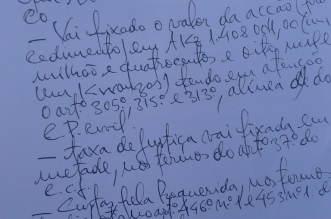 CO.
- Vai fixado o valor da acção (
cedimento) em AKz 1.408.0 ,00 (um
milhão e quatrocentos e oito mil e
um Kwanzas) tendo em atenção
o artº 305º, 315º e 313º, alínea do
C.P. Civil.
- Taxa de justiça vai fixada em
metade, nos termos do artº 37º do
C.C.J.
- Custas pela Requerida, nos termos
artº 446º nº 1 e 453º nº 1 d